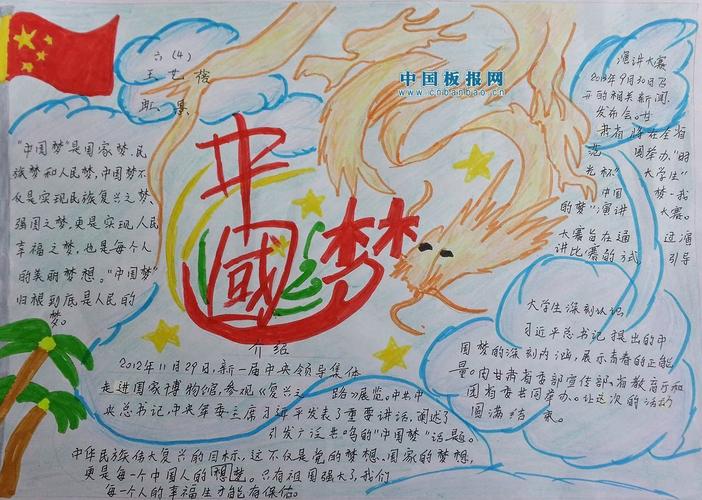 六(4)
王艺
中国板报网
www.cnbanbao.cn
"中国梦"是国家梦、民
族梦和人民梦,中国梦不
仅是实现民族复兴之梦、
强国之梦,更是实现人民
幸福之梦,也是每个人
的美丽梦想。"中国梦"
归根到底是人民的
梦。
中国梦
介绍
2012年11月29日,新一届中央领导集体
走进国家博物馆,参观《复兴之 路》展览。中共中
央总书记,中央军委主席习近平发表了重要讲话,阐述了
引发广泛共鸣的"中国梦"话题。
中华民族伟大复兴的目标,这不仅是党的梦想、国家的梦想,
更是每一个中国人的想梦。只有祖国强大了,我们
每一个人的幸福生才能有保倍。
演讲大赛
2013年9月30日召
开的相关新闻
发布会。甘
肃省将在全省
范 围举办"时
光杯" 大学生"
中国 梦-我
的梦"演讲 大赛。
大赛旨在通 过演
讲比赛的方式, 引导
大学生深刻认识
习近平总书记提出的中
国梦的深刻内涵,展示青春的正能
量。由甘肃省委部宣传部、省教育厅和
团省委共同举办。让这次的活动
圆满结束。